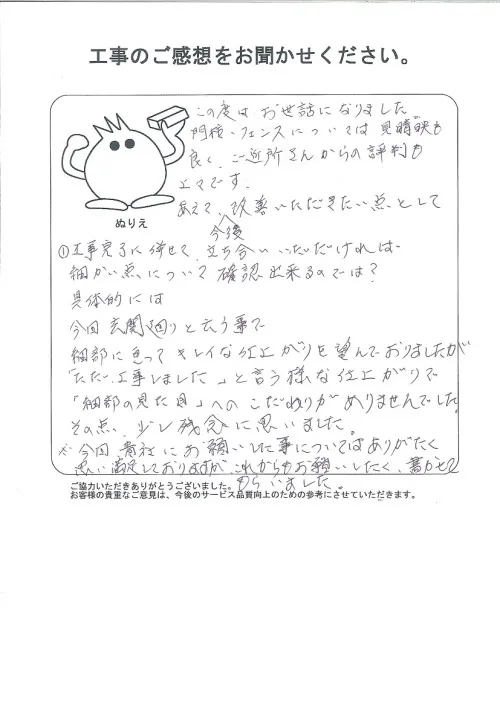 工事のご感想をお聞かせください。
この度は お世話になりました。
門扉・フェンスについては 見晴映も
良く、ご近所さんからの評判も
エマです。
あえて、改善いただきたい点として
今後
ぬりえ
①工事完了に併せて、立ち合いいただければ
細かい点について確認出来るのでは?
具体的には
今回玄関廻りと云う事で
細部に亘って キレイな仕上がりを望んでおりましたが
「ただ、工事しました」と言う様な仕上がりで
「細部の見た目」へのこだわりがありませんでした。
その点、少し残念に思いました。
今回 貴社にお願いした事についてはありがたく
思い満足しておりますが、これからもお願いしたく、書かせて
もらいました。
ご協力いただきありがとうございました。
お客様の貴重なご意見は、今後のサービス品質向上のための参考にさせていただきます。